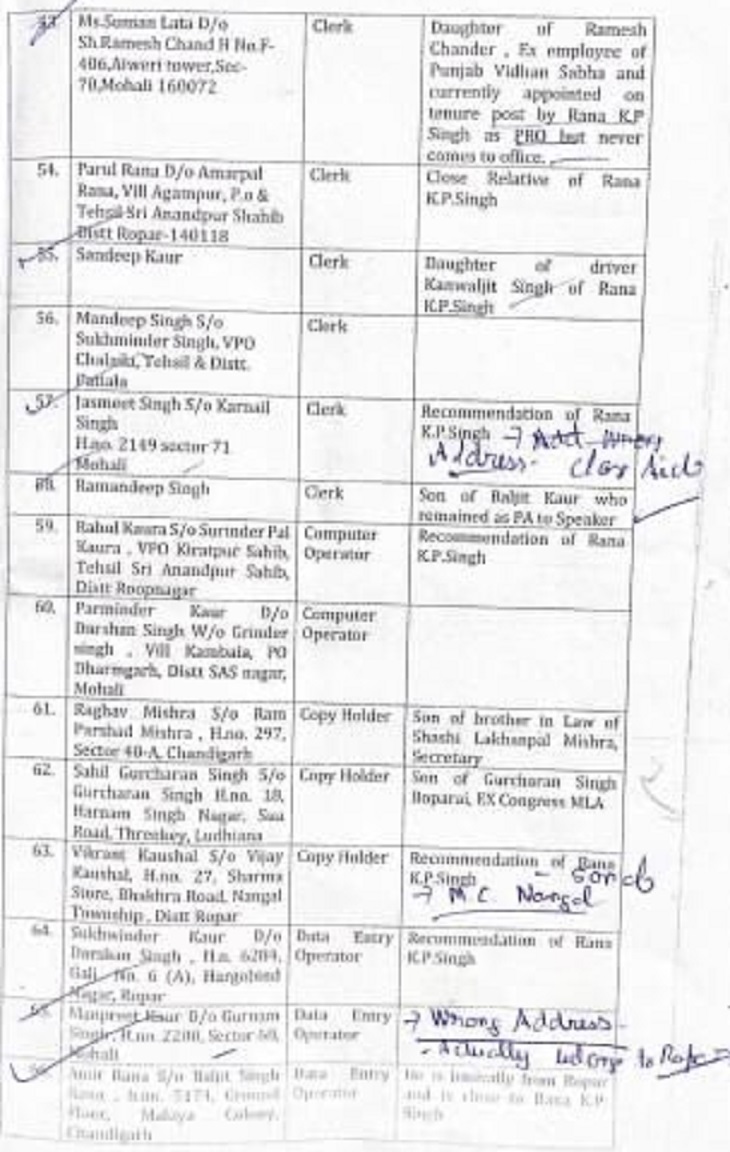 53.
Ms.Suman Lata D/o
Sh.Ramesh Chand H No.F-
406,Alweri tower,Sec-
70,Mohali 160072
Clerk
Daughter of Ramesh
Chander , Ex employee of
Punjab Vidhan Sabha and
currently appointed on
tenure post by Rana K.P
Singh as PRO but never
comes to office.
54.
Parul Rana D/o Amarpal
Rana, Vill Agampur, P.o &
Tehsil Sri Anandpur Shahib
Distt Ropar-140118
Clerk
Close Relative of Rana
K.P.Singh
55.
Sandeep Kaur
Clerk
Daughter of driver
Kanwaljit Singh of Rana
K.P.Singh
56.
Mandeep Singh S/o
Sukhminder Singh, VPO
Tehsil & Distt.
Patiala
Clerk
57.
Jasmeet Singh S/o Karnail
Singh
H.no. 2149 sector 71
Mohali
Clerk
Recommendation of Rana
K.P.Singh → Add Wrong
Address - Close Aide
58.
Ramandeep Singh
Clerk
Son of Baljit Kaur who
remained as PA to Speaker
59.
Rahul Kaura S/o Surinder Pal
Kaura , VPO Kiratpur Sahib,
Tehsil Sri Anandpur Sahib,
Distt Roopnagar
Computer
Operator
Recommendation of Rana
K.P.Singh
60.
Parminder Kaur D/o
Darshan Singh W/o Grinder
singh , Vill Kambala, PO
Dharmgarh, Distt SAS nagar,
Mohali
Computer
Operator
61.
Raghav Mishra S/o Ram
Parshad Mishra , H.no. 297,
Sector 40-A, Chandigarh
Copy Holder
Son of brother in Law of
Shashi Lakhanpal Mishra,
Secretary
62.
Sahil Gurcharan Singh S/o
Gurcharan Singh H.no. 18,
Harnam Singh Nagar, Sua
Road, Threekey, Ludhiana
Copy Holder
Son of Gurcharan Singh
Boparai, EX Congress MLA
63.
Vikrant Kaushal S/o Vijay
Kaushal, H.no. 27, Sharma
Store, Bhakhra Road, Nangal
Township , Distt Ropar
Copy Holder
Recommendation of Rana
K.P.Singh - Son of
→ M.C. Nangal
64.
Sukhwinder Kaur D/o
Darshan Singh , H.n. 6204,
Gali No. 6 (A), Hargobind
Nagar, Ropar
Data Entry
Operator
Recommendation of Rana
K.P.Singh
65.
Manpreet Kaur D/o Gurnam
Singh, H.no 2200, Sector 69,
Mohali
Data Entry
Operator
→ Wrong Address -
- Actually belongs to Ropar
Amit Rana S/o Baljit Singh
Rana , h.no. 5173, Ground
Floor, Malaya Colony,
Chandigarh
Data Entry
Operator
he is basically from Ropar
and is close to Rana K.P
Singh